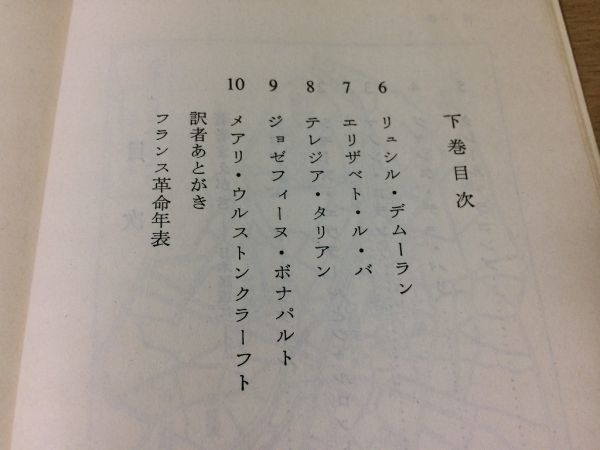 下巻目次
6 リュシル・デムーラン
7 エリザベト・ル・バ
8 テレジア・タリアン
9 ジョゼフィーヌ・ボナパルト
10 メアリ・ウルストンクラーフト
訳者あとがき
フランス革命年表